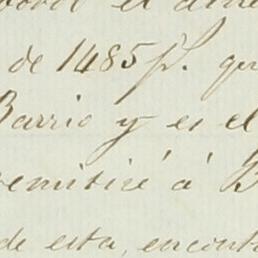 el
de 1485 p$. que
Barrio y es el
remitiré á B
de esta, encont